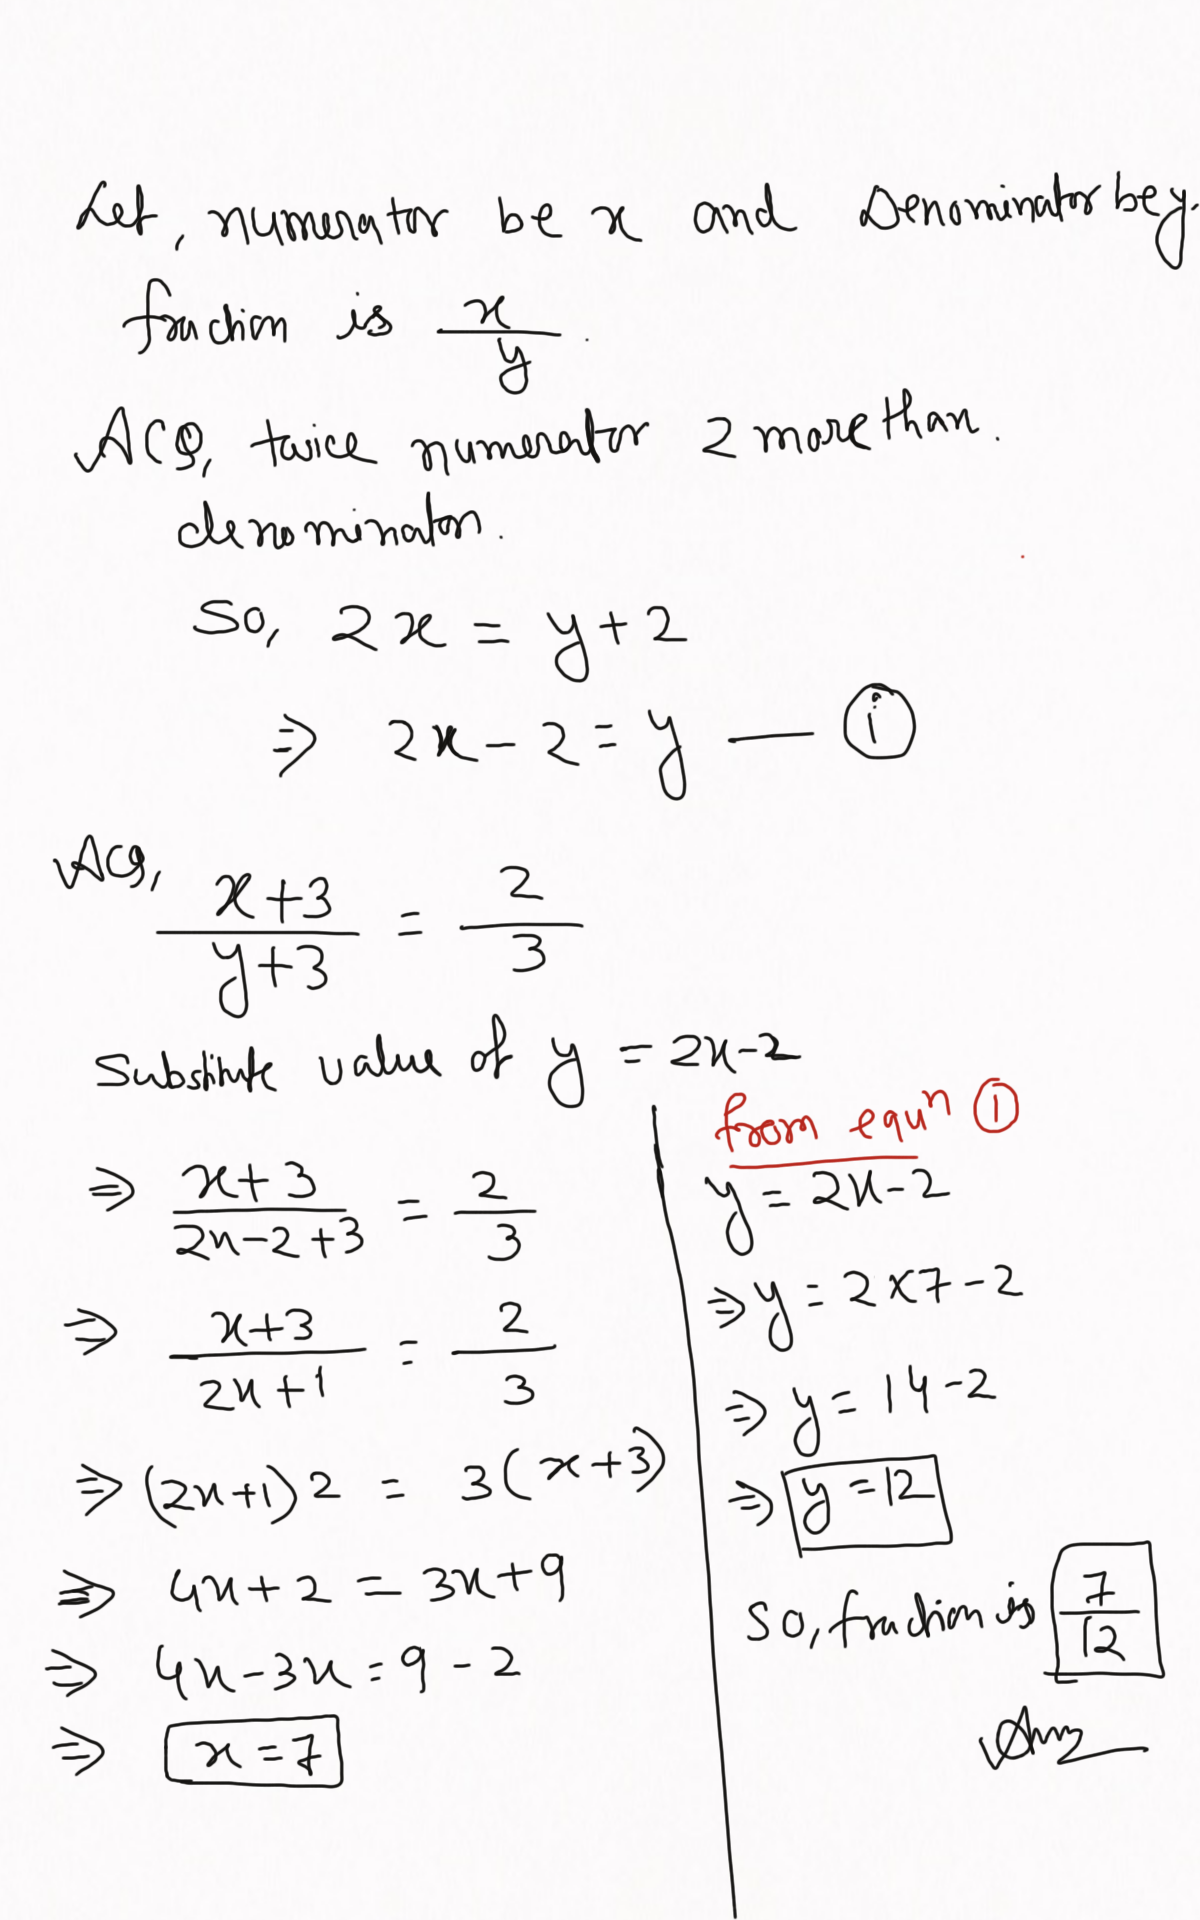 Let, numerator be x and Denominator be y.
fraction is x/y.
ACQ, twice numerator 2 more than.
denominator.
So, 2x = y+2
⇒ 2x-2 = y — (i)
ACQ, (x+3)/(y+3) = 2/3
Substitute value of y = 2x-2
⇒ (x+3)/(2x-2+3) = 2/3
⇒ (x+3)/(2x+1) = 2/3
⇒ (2x+1)2 = 3(x+3)
⇒ 4x+2 = 3x+9
⇒ 4x-3x = 9-2
⇒ x=7
from equⁿ ①
y = 2x-2
⇒ y = 2×7-2
⇒ y = 14-2
⇒ y = 12
So, fraction is 7/12
Ans